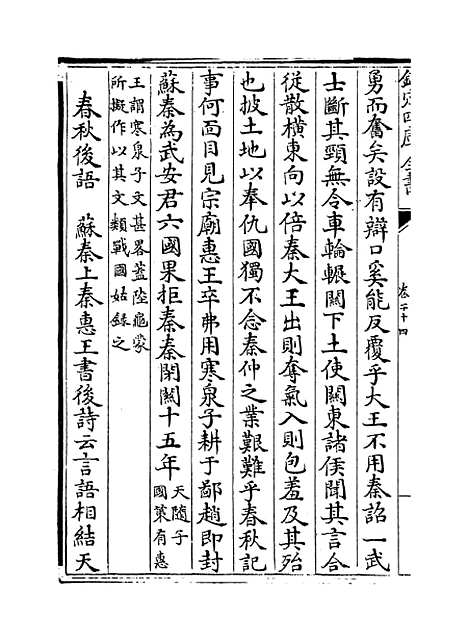 欽定四庫全書
卷二十四
勇而奮矣設有辯口奚能反覆乎大王不用秦詔一武
士斷其頸無令車輪輾闗下土使闗東諸侯聞其言合
從散橫東向以倍秦大王出則奪氣入則包羞及其殆
也披土地以奉仇國獨不念秦仲之業艱難乎春秋記
事何面目見宗廟惠王卒弗用寒泉子耕于鄙趙即封
蘇秦為武安君六國果拒秦秦閉闗十五年天隨子
國策有惠
王謂寒泉子文甚畧蓋陸龜蒙
所擬作以其文類戰國姑錄之
春秋後語　蘇秦上秦惠王書後詩云言語相結天